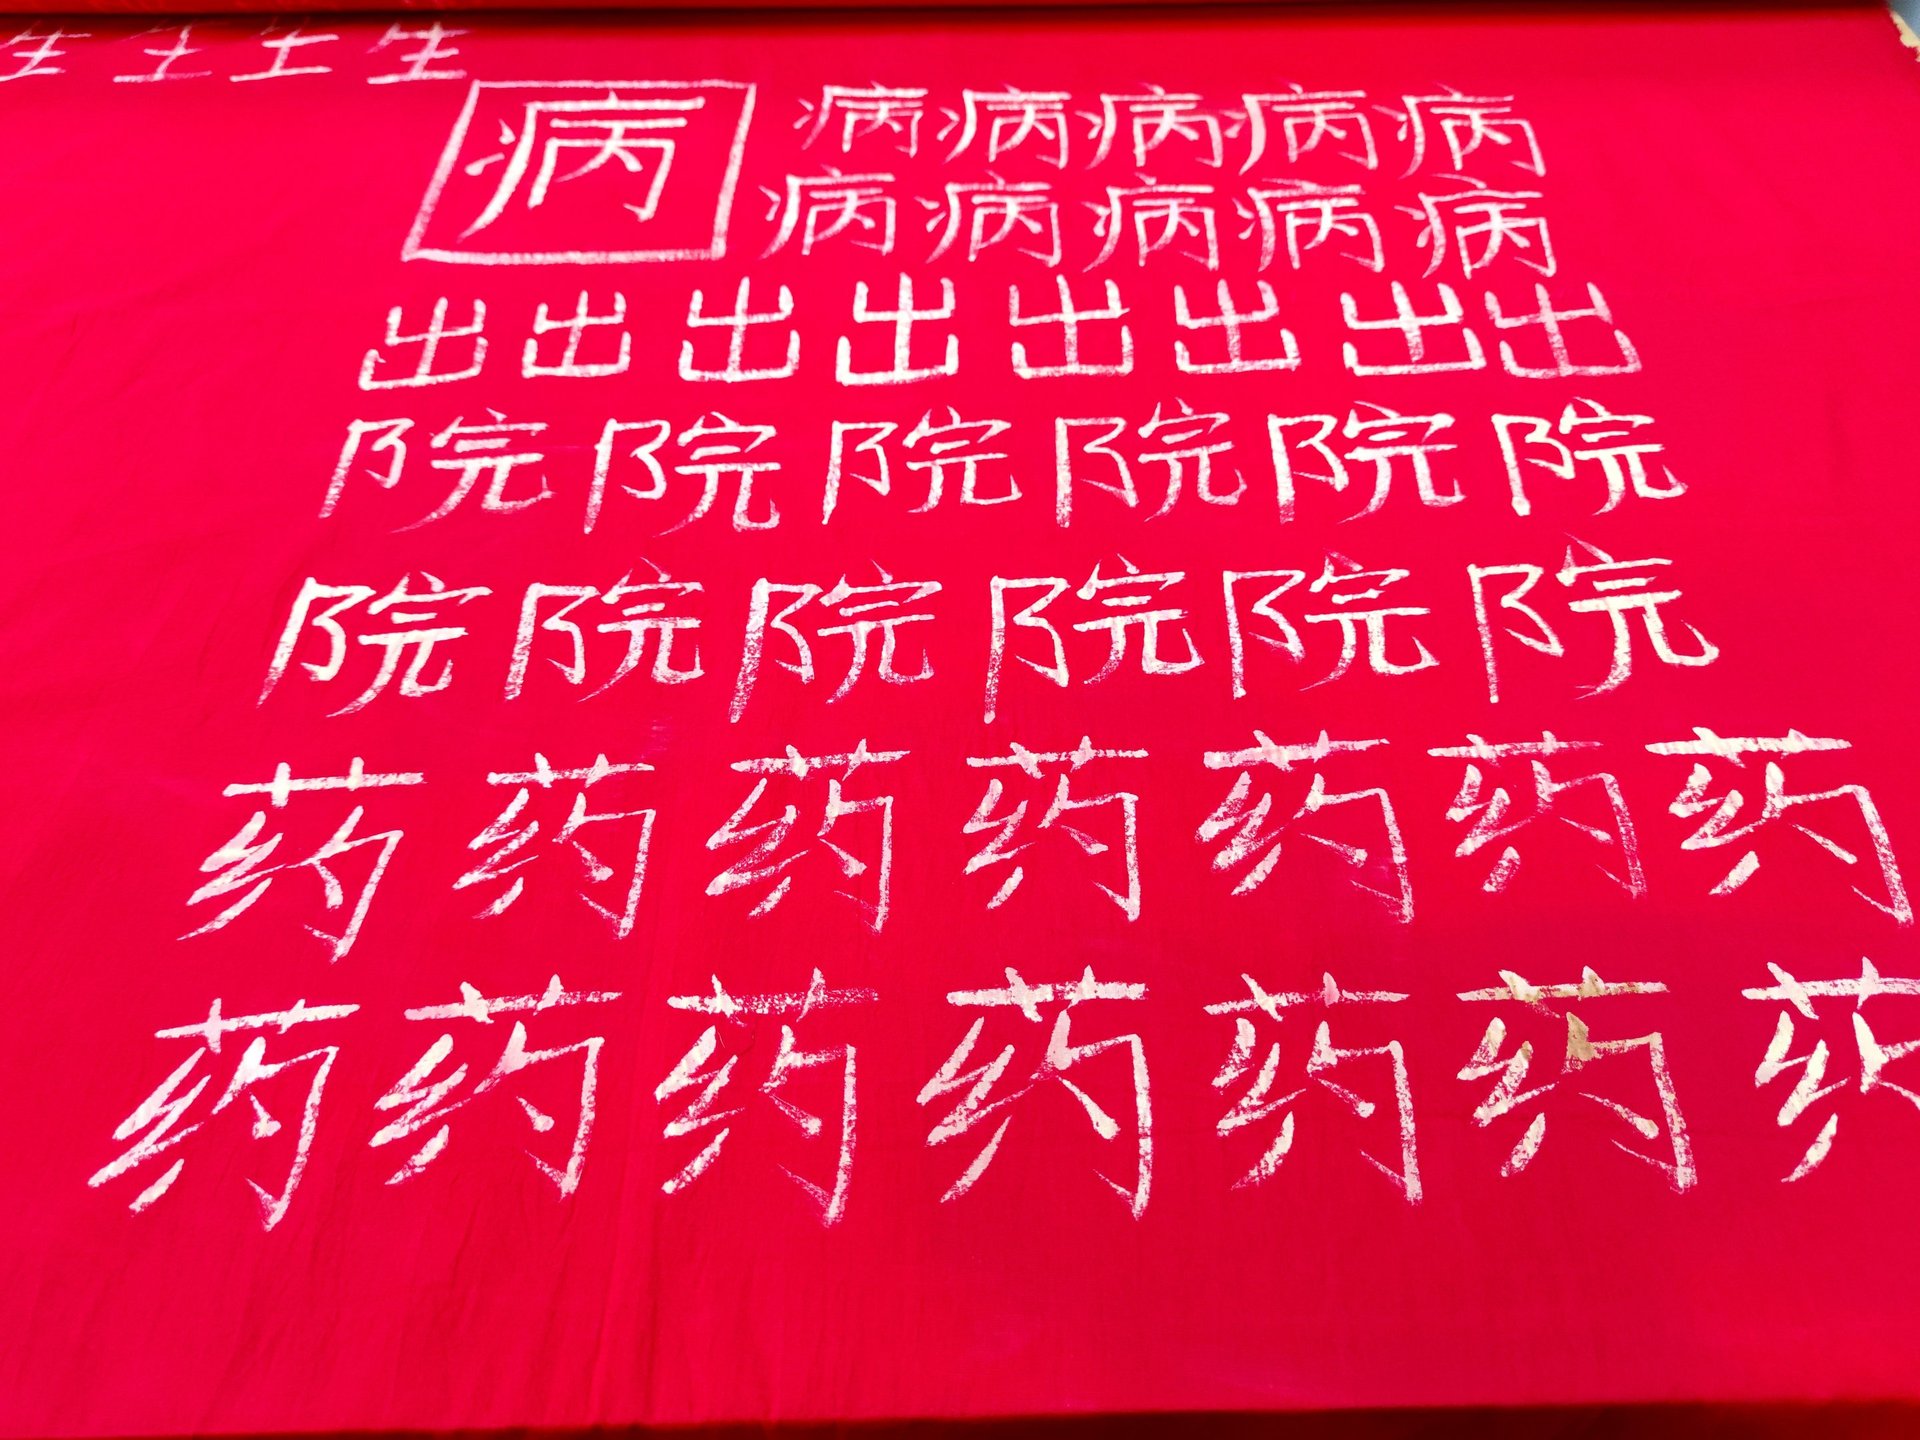 生生生生
病 病病病病病
病病病病病
出出出出出出出出
院院院院院院
院院院院院院
药药药药药药药
药药药药药药药